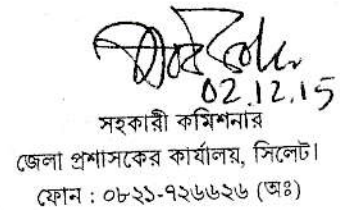 02.12.15
সহকারী কমিশনার
জেলা প্রশাসকের কার্যালয়, সিলেট।
ফোন : ০৮২১-৭২৬৬২৬ (অঃ)